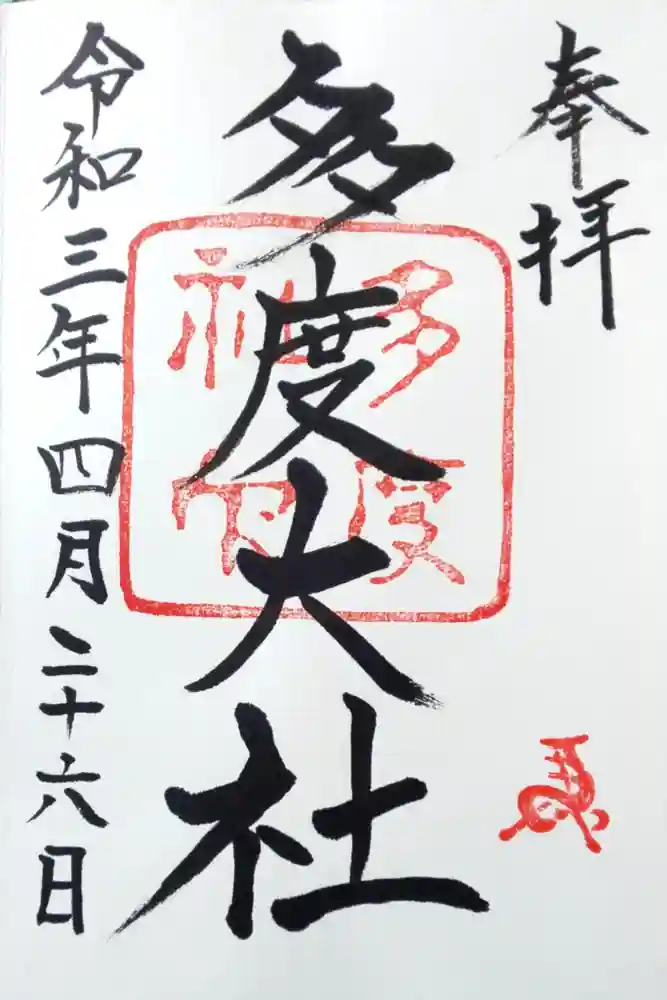 奉拝
多度大社
令和三年四月二十六日
多度
神印